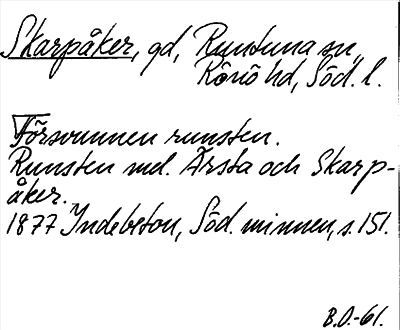 Skarpåker, gd, Runtuna sn,
Rönö hd, Söd. l.
Försvunnen runsten.
Runsten md. Årsta och Skarp-
åker.
1877 Indebetou, Söd. minnen, s. 151.
B.O.-61.